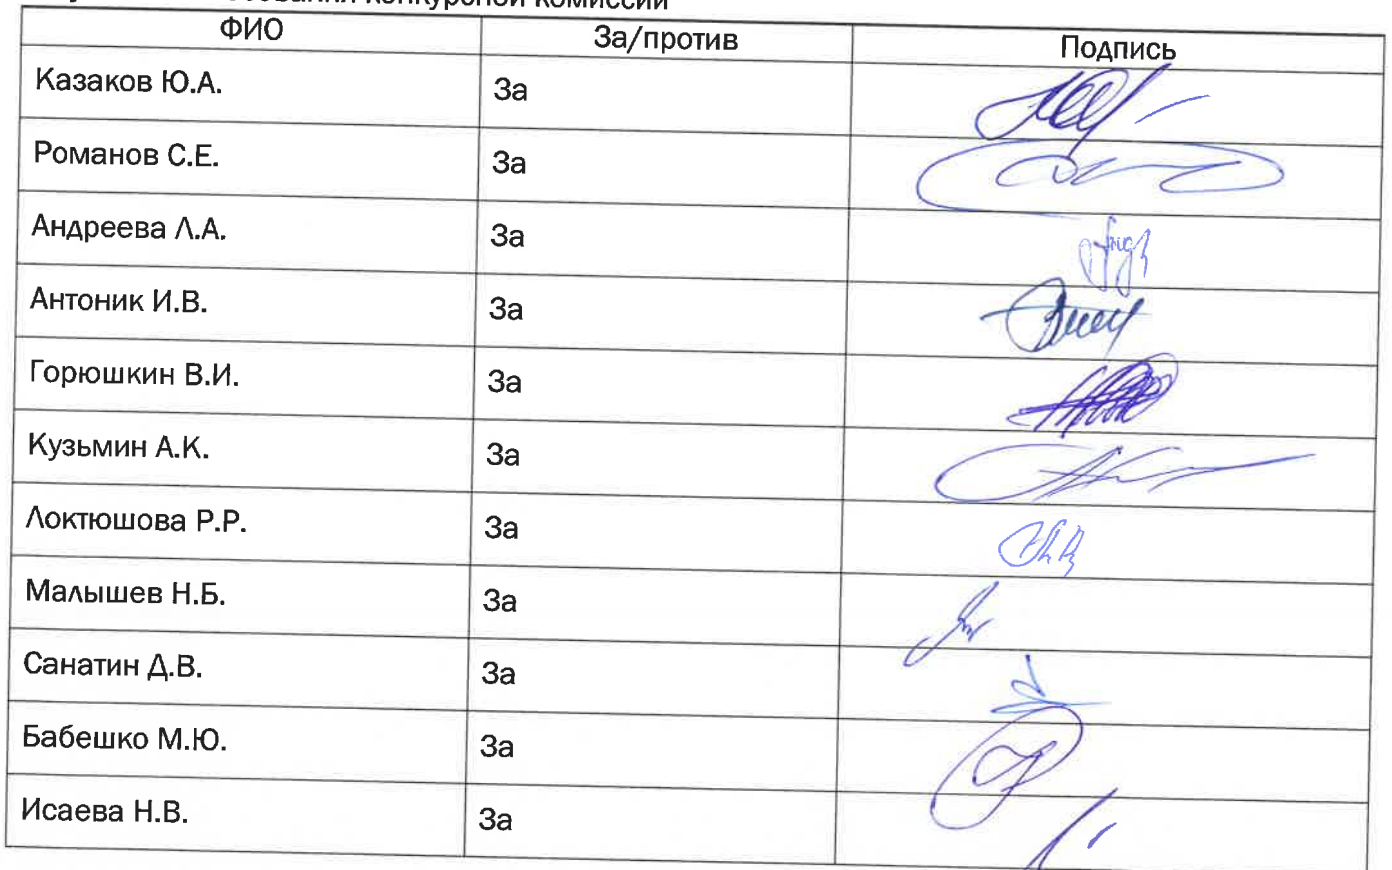 конкурсной комиссии
ФИО За/против Подпись
Казаков Ю.А. За
Романов С.Е. За
Андреева Л.А. За
Антоник И.В. За
Горюшкин В.И. За
Кузьмин А.К. За
Локтюшова Р.Р. За
Малышев Н.Б. За
Санатин Д.В. За
Бабешко М.Ю. За
Исаева Н.В. За